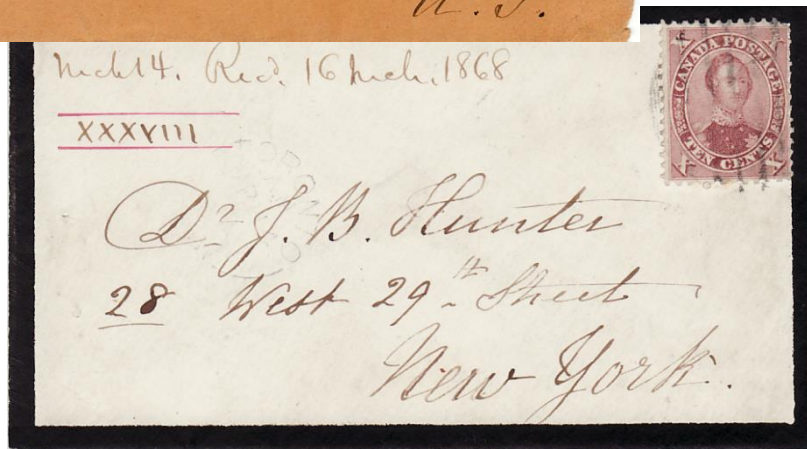 U. S.
Mch 14. Recd. 16 Mch. 1868
XXXVIII
CANADA POSTAGE
X X
TEN CENTS
X X
TORONTO
Dr J. B. Hunter
28 West 29th Street
New York.